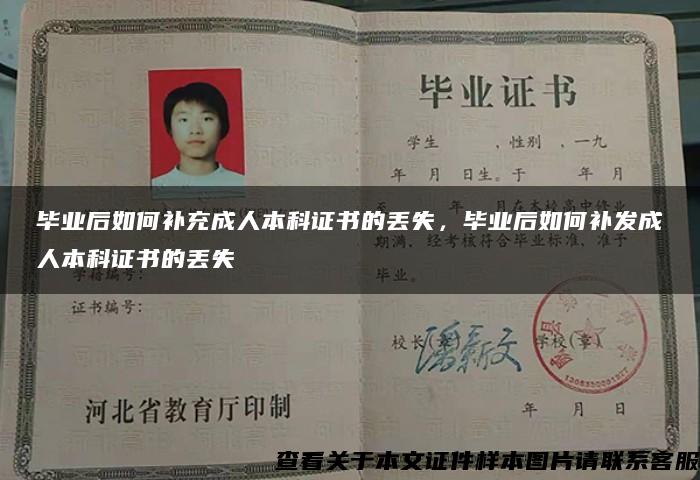 毕业证书
学生 ，性别 ，一九
年 月 日生。于 年 月
至 年 月在本校高中修业
期满，经考核符合毕业标准，准予
毕业。
毕业后如何补充成人本科证书的丢失，毕业后如何补发成
人本科证书的丢失
学籍号：
证书编号：
校长（章） 学校（章）
年 月 日
河北省教育厅印制
查看关于本文证件样本图片请联系客服